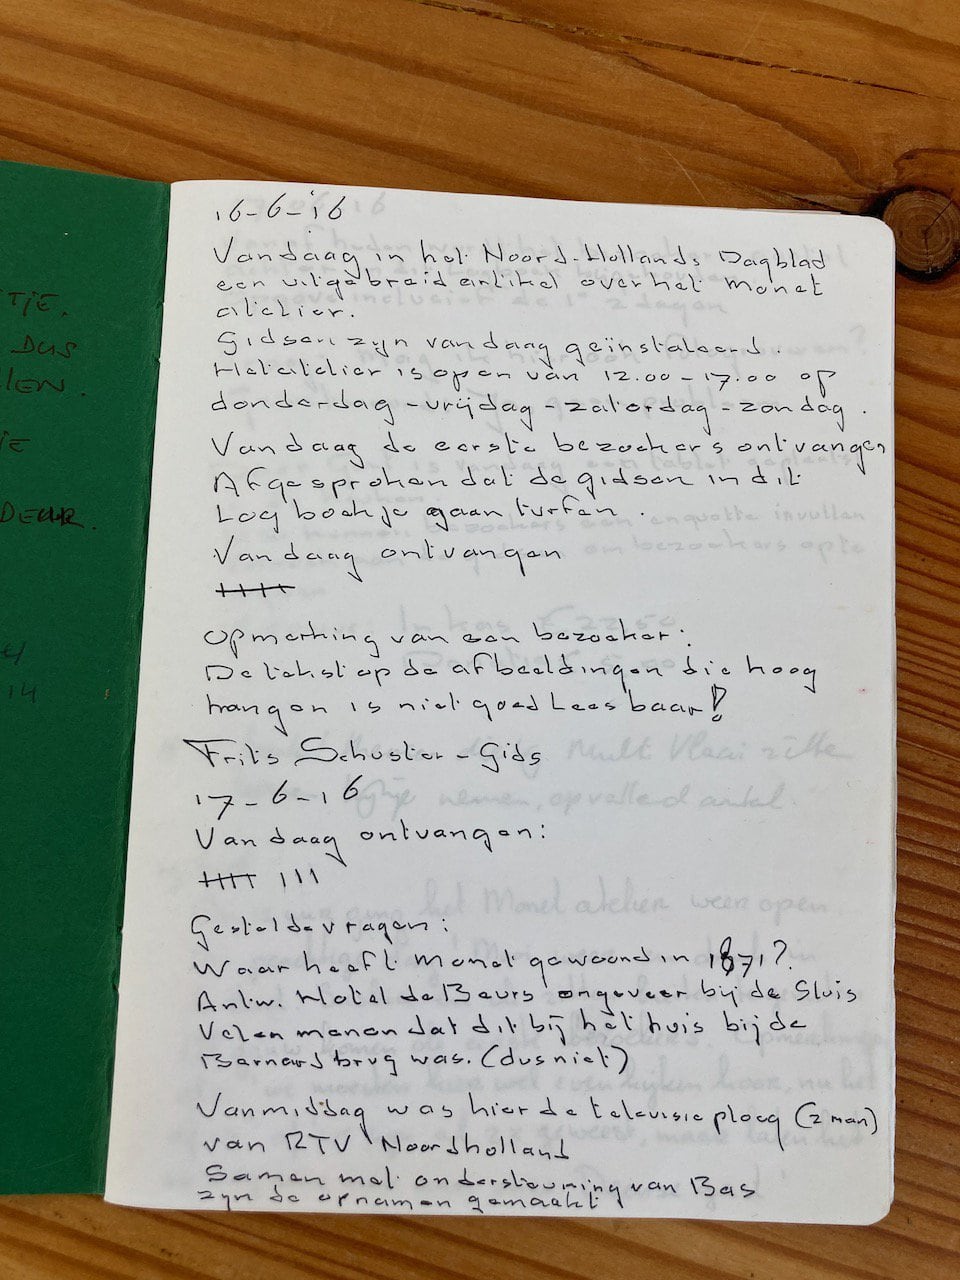 TJE.
DUS
LEN.
JE
DEUR.
14
16-6-16
Vandaag in het Noord-Hollands Dagblad
een uitgebreid artikel over het monet
atelier.
Gidsen zyn vandaag geïnstaleerd.
Het atelier is open van 12.00-17.00 op
donderdag-vrijdag-zaterdag-zondag.
Vandaag de eerste bezoekers ontvangen
Afgesproken dat de gidsen in dit
Logboekje gaan turfen.
Vandaag ontvangen
Opmerking van een bezoeker:
De tekst op de afbeeldingen die hoog
hangen is niet goed Leesbaar!
Frits Schuster-Gids
17-6-16
Vandaag ontvangen:
Gestelde vragen:
Waar heeft Monet gewoond in 1871?
Antw. Hotel de Beurs ongeveer bij de Sluis
Velen menen dat dit bij het huis bij de
Barnardbrug was. (dus niet)
Vanmiddag was hier de televisieploeg (2 man)
van RTV Noordholland
Samen met ondersteuning van Bas
zyn de opnamen gemaakt